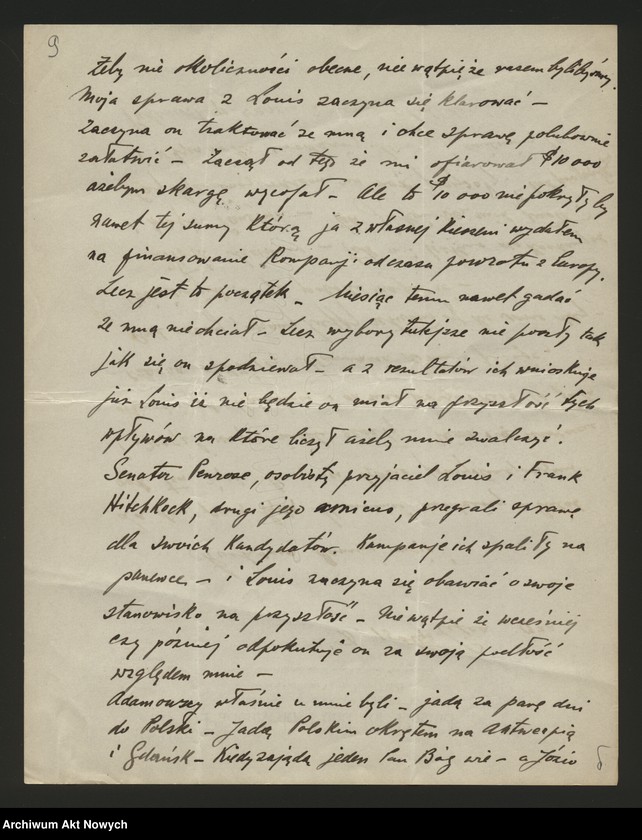 9
Żeby nie okoliczności obecne, nie wątpię że razem bylibyśmy.
Moja sprawa z Louis zaczyna się klarować –
Zaczyna on traktować ze mną i chce sprawę polubownie
załatwić – Zaczął od tego że mi ofiarował $10 000
ażebym skargę wycofał – Ale to $10 000 nie pokryłyby
nawet tej sumy którą ja z własnej kieszeni wydałem
na finansowanie Kompanji od czasu powrotu z Europy.
Lecz jest to początek – Miesiąc temu nawet gadać
ze mną nie chciał – Lecz wybory tutejsze nie poszły tak
jak się on spodziewał – a z rezultatów ich wnioskuje
już Louis iż nie będzie on miał na przyszłość tych
wpływów na które liczył ażeby mnie zwalczyć.
Senator Penrose, osobisty przyjaciel Louis i Frank
Hitchkock, drugi jego amicus, przegrali sprawę
dla swoich kandydatów. Kampanje ich spaliły na
panewce – i Louis zaczyna się obawiać o swoje
stanowisko na przyszłość – Nie wątpię że wcześniej
czy później odpokutuje on za swoją podłość
względem mnie –
Adamowscy właśnie u mnie byli – jadą za parę dni
do Polski – Jadą Polskim okrętem na Antwerpią
i Gdańsk – Kiedy zajadą jeden Pan Bóg wie – a Józio
Archiwum Akt Nowych